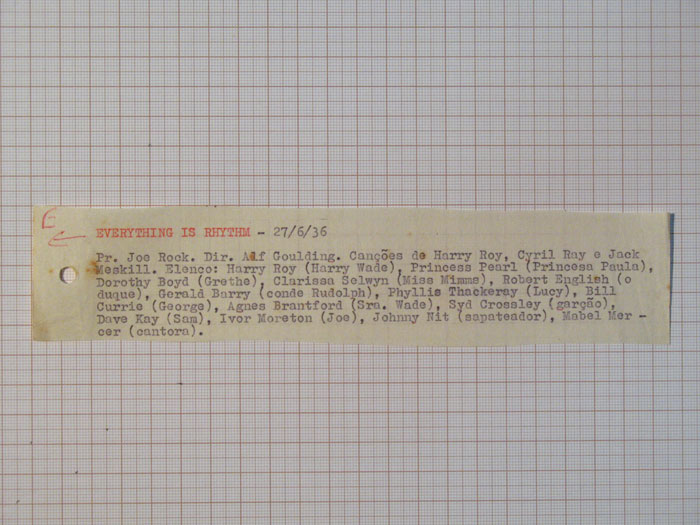 E
EVERYTHING IS RHYTHM - 27/6/36
Pr. Joe Rock. Dir. Alf Goulding. Canções de Harry Roy, Cyril Ray e Jack
Meskill. Elenco: Harry Roy (Harry Wade), Princess Pearl (Princesa Paula),
Dorothy Boyd (Grethe), Clarissa Selwyn (Miss Mimms), Robert English (o
duque), Gerald Barry (conde Rudolph), Phyllis Thackeray (Lucy), Bill
Currie (George), Agnes Brantford (Sra. Wade), Syd Crossley (garção),
Dave Kay (Sam), Ivor Moreton (Joe), Johnny Nit (sapateador), Mabel Mer -
cer (cantora).